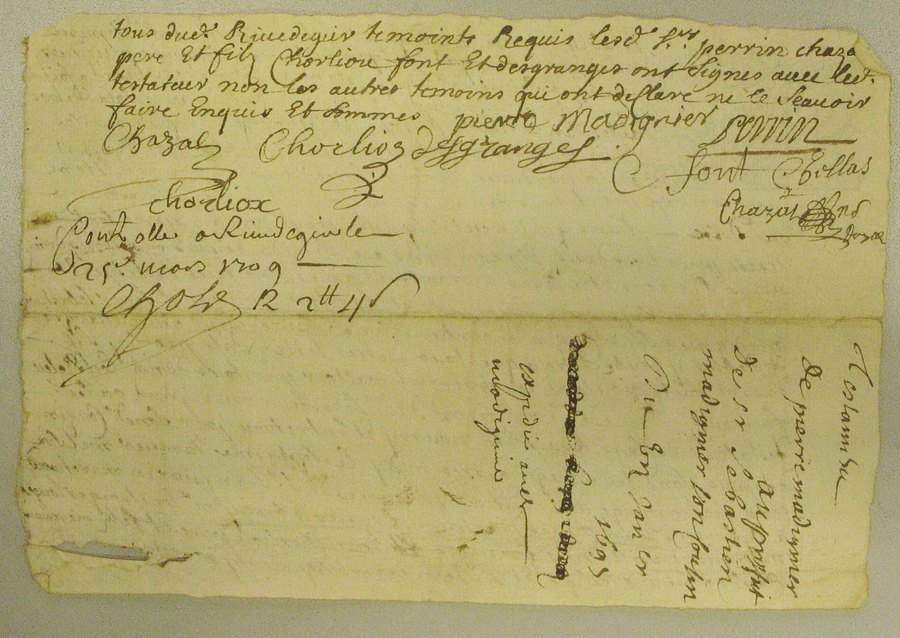 tous dud. Rivedegier temoints Requis lesd. Srs perrin chaza
pere Et filz Chorliou font Et desgranges ont signes avec led.
testateur non les autres temoins qui ont desclare ne le scavoir
faire Enquis Et sommes pierre Madignier perrin
Chazal Chorlioz desgranges
font Chellas
chorliox
Chazal
a Rivedegier le
25e mars 1709
R 2tt 4s
Testament
de pierre madignier
au proffit
de sr sebastien
madignier son cousin
Du En Janer
1693
expdie avec
madignier